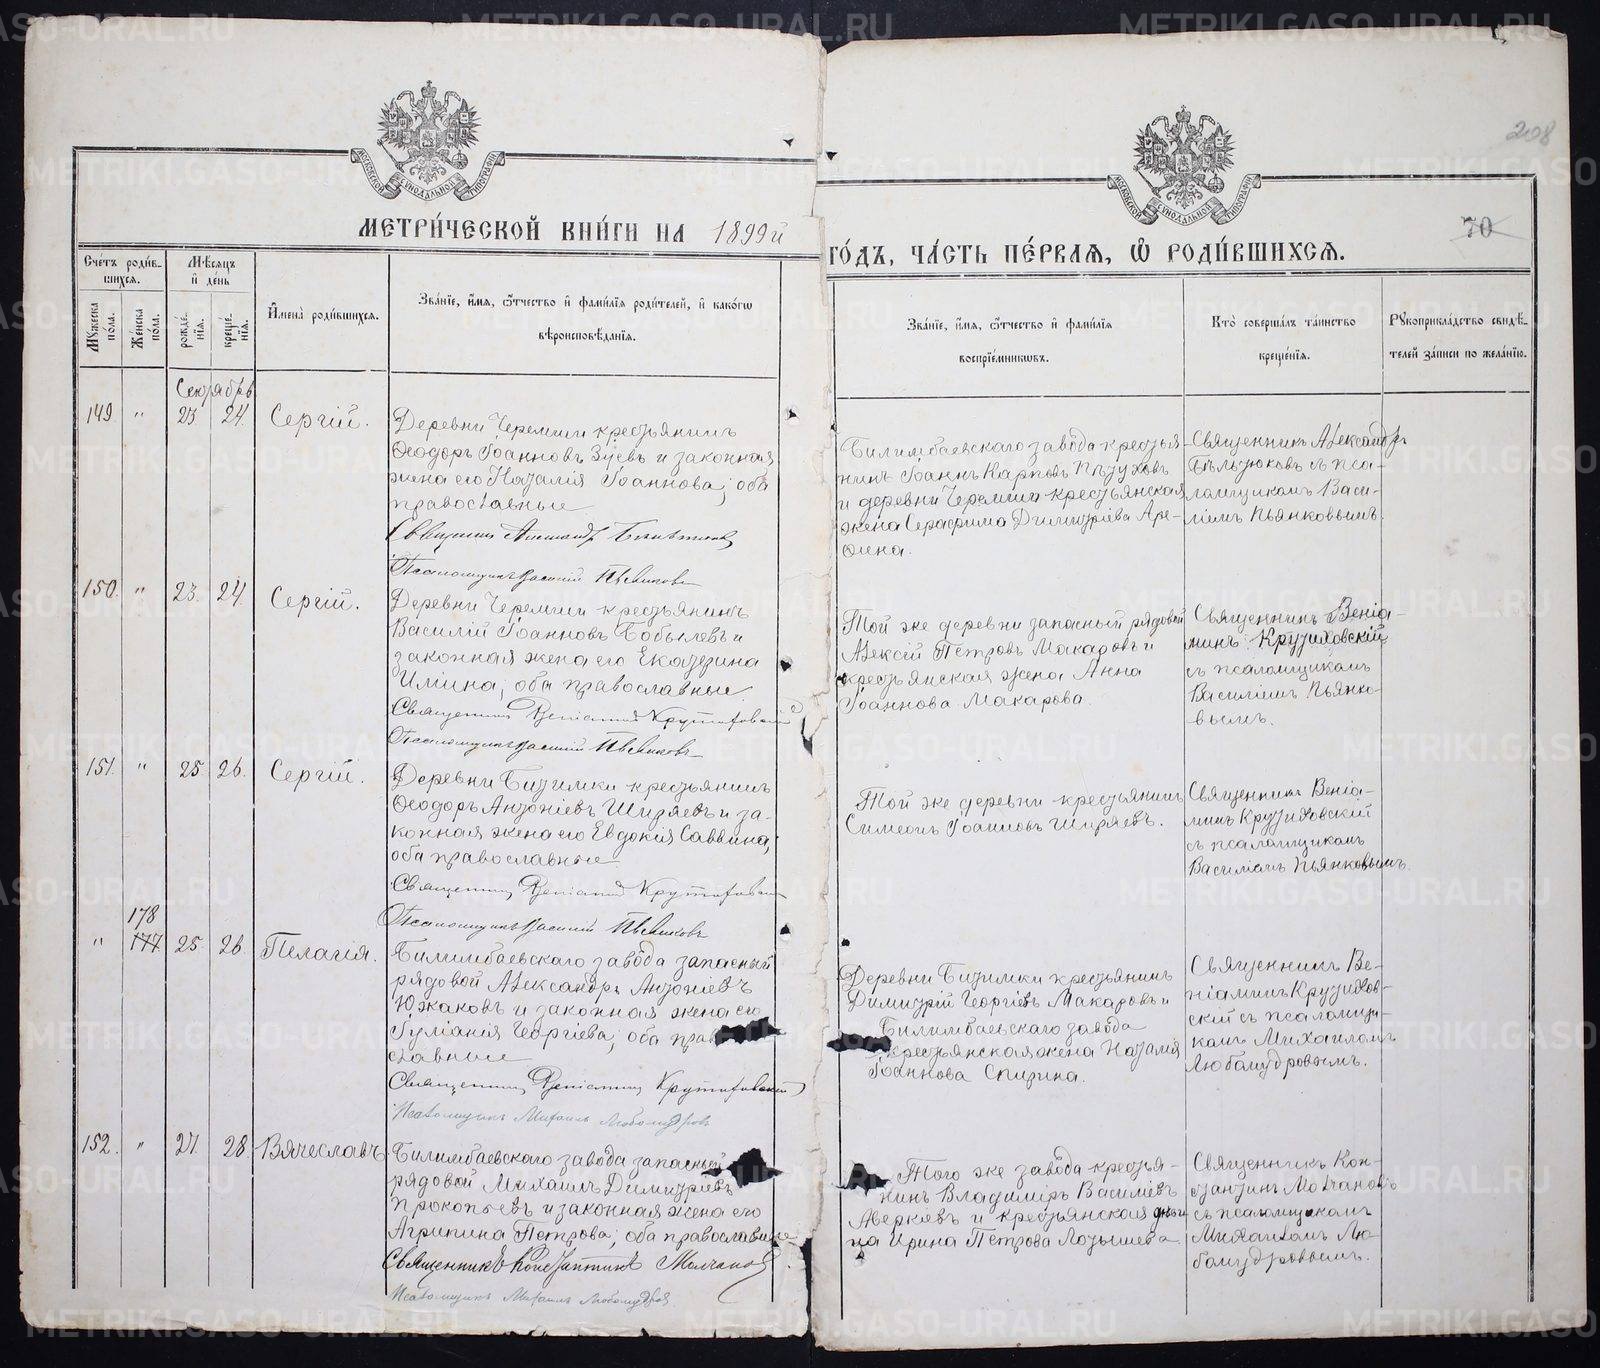 METRIKI.GASO-URAL.RU
208
70
МОСКОВСКОЙ СѴНОДАЛЬНОЙ ТИПОГРАФІИ
МОСКОВСКОЙ СѴНОДАЛЬНОЙ ТИПОГРАФІИ
МЕТРИ́ЧЕСКОЙ КНИ́ГИ НА 1899й ГО́ДЪ, ЧА́СТЬ ПЕ́РВАЯ, Ѡ РОДИ́ВШИХСЯ.
Сче́тъ роди́в-
шихся.
Мꙋжеска по́ла.
Же́нска по́ла.
Мѣ́сяцъ
и де́нь
рожде́-
нія.
креще́-
нія.
Имена̀ роди́вшихся.
Зва́ніе, имя, ѻтчество и фами́лія роди́телей, и како́гѡ
вѣроисповѣ́данія.
Зва́ніе, имя, ѻтчество и фами́лія
воспріе́мникѡвъ.
Кто̀ соверша́лъ та́инство
креще́нія.
Рꙋкоприкла́дство свидѣ́-
телей за́писи по жела́нію.
Сентябрь
149 " 23 24 Сергій.
Деревни Черемши крестьянинъ
Ѳеодоръ Іоанновъ Зуевъ и законная
жена его Наталія Іоаннова; оба
православные
Священникъ Александръ Бѣльтюковъ
Псаломщикъ Василій Пьянковъ
Билимбаевскаго завода крестья-
нинъ Іоаннъ Карповъ Пѣтуховъ
и деревни Черемши крестьянская
жена Серафима Димитріева Аре-
фина.
Священникъ Александръ
Бѣльтюковъ съ пса-
ломщикомъ Васи-
ліемъ Пьянковымъ.
150. " 23. 24 Сергій.
Деревни Черемши крестьянинъ
Василій Іоанновъ Бобылевъ и
законная жена его Екатерина
Ильина; оба православные
Священникъ Веніаминъ Крутиховскій
Псаломщикъ Василій Пьянковъ
Той же деревни запасный рядовой
Алексій Петровъ Макаровъ и
крестьянская жена Анна
Іоаннова Макарова.
Священникъ Веніа-
минъ Крутиховскій
съ псаломщикомъ
Василіемъ Пьянко-
вымъ.
151. " 25 26. Сергій.
Деревни Битимки крестьянинъ
Ѳеодоръ Антоніевъ Ширяевъ и за-
конная жена его Евдокія Саввина;
оба православные
Священникъ Веніаминъ Крутиховскій
Псаломщикъ Василій Пьянковъ
Той же деревни крестьянинъ
Симеонъ Іоанновъ Ширяевъ.
Священникъ Веніа-
минъ Крутиховскій
съ псаломщикомъ
Василіемъ Пьянковымъ.
178
" 177 25. 26. Пелагія.
Билимбаевскаго завода запасный
рядовой Александръ Антоніевъ
Южаковъ и законная жена его
Іуліанія Георгіева; оба прав
славные
Священникъ Веніаминъ Крутиховскій
Псаломщикъ Михаилъ Любомудровъ
Деревни Битимки крестьянинъ
Димитрій Георгіевъ Макаровъ и
Билимбаевскаго завода
крестьянская жена Наталія
Іоаннова Спирина.
Священникъ Ве-
ніаминъ Крутихов-
скій съ псаломщи-
комъ Михаиломъ
Любомудровымъ.
152. " 27. 28. Вячеславъ.
Билимбаевскаго завода запасный
рядовой Михаилъ Димитріевъ
Прокопьевъ и законная жена его
Агрипина Петрова; оба православные
Священникъ Константинъ Молчановъ
Псаломщикъ Михаилъ Любомудровъ
Того же завода крестья-
нинъ Владиміръ Василіевъ
Аверкіевъ и крестьянская дѣви
ца Ирина Петрова
Священникъ Кон-
стантинъ Молчановъ
съ псаломщикомъ
Михаиломъ Лю-
бомудровымъ.